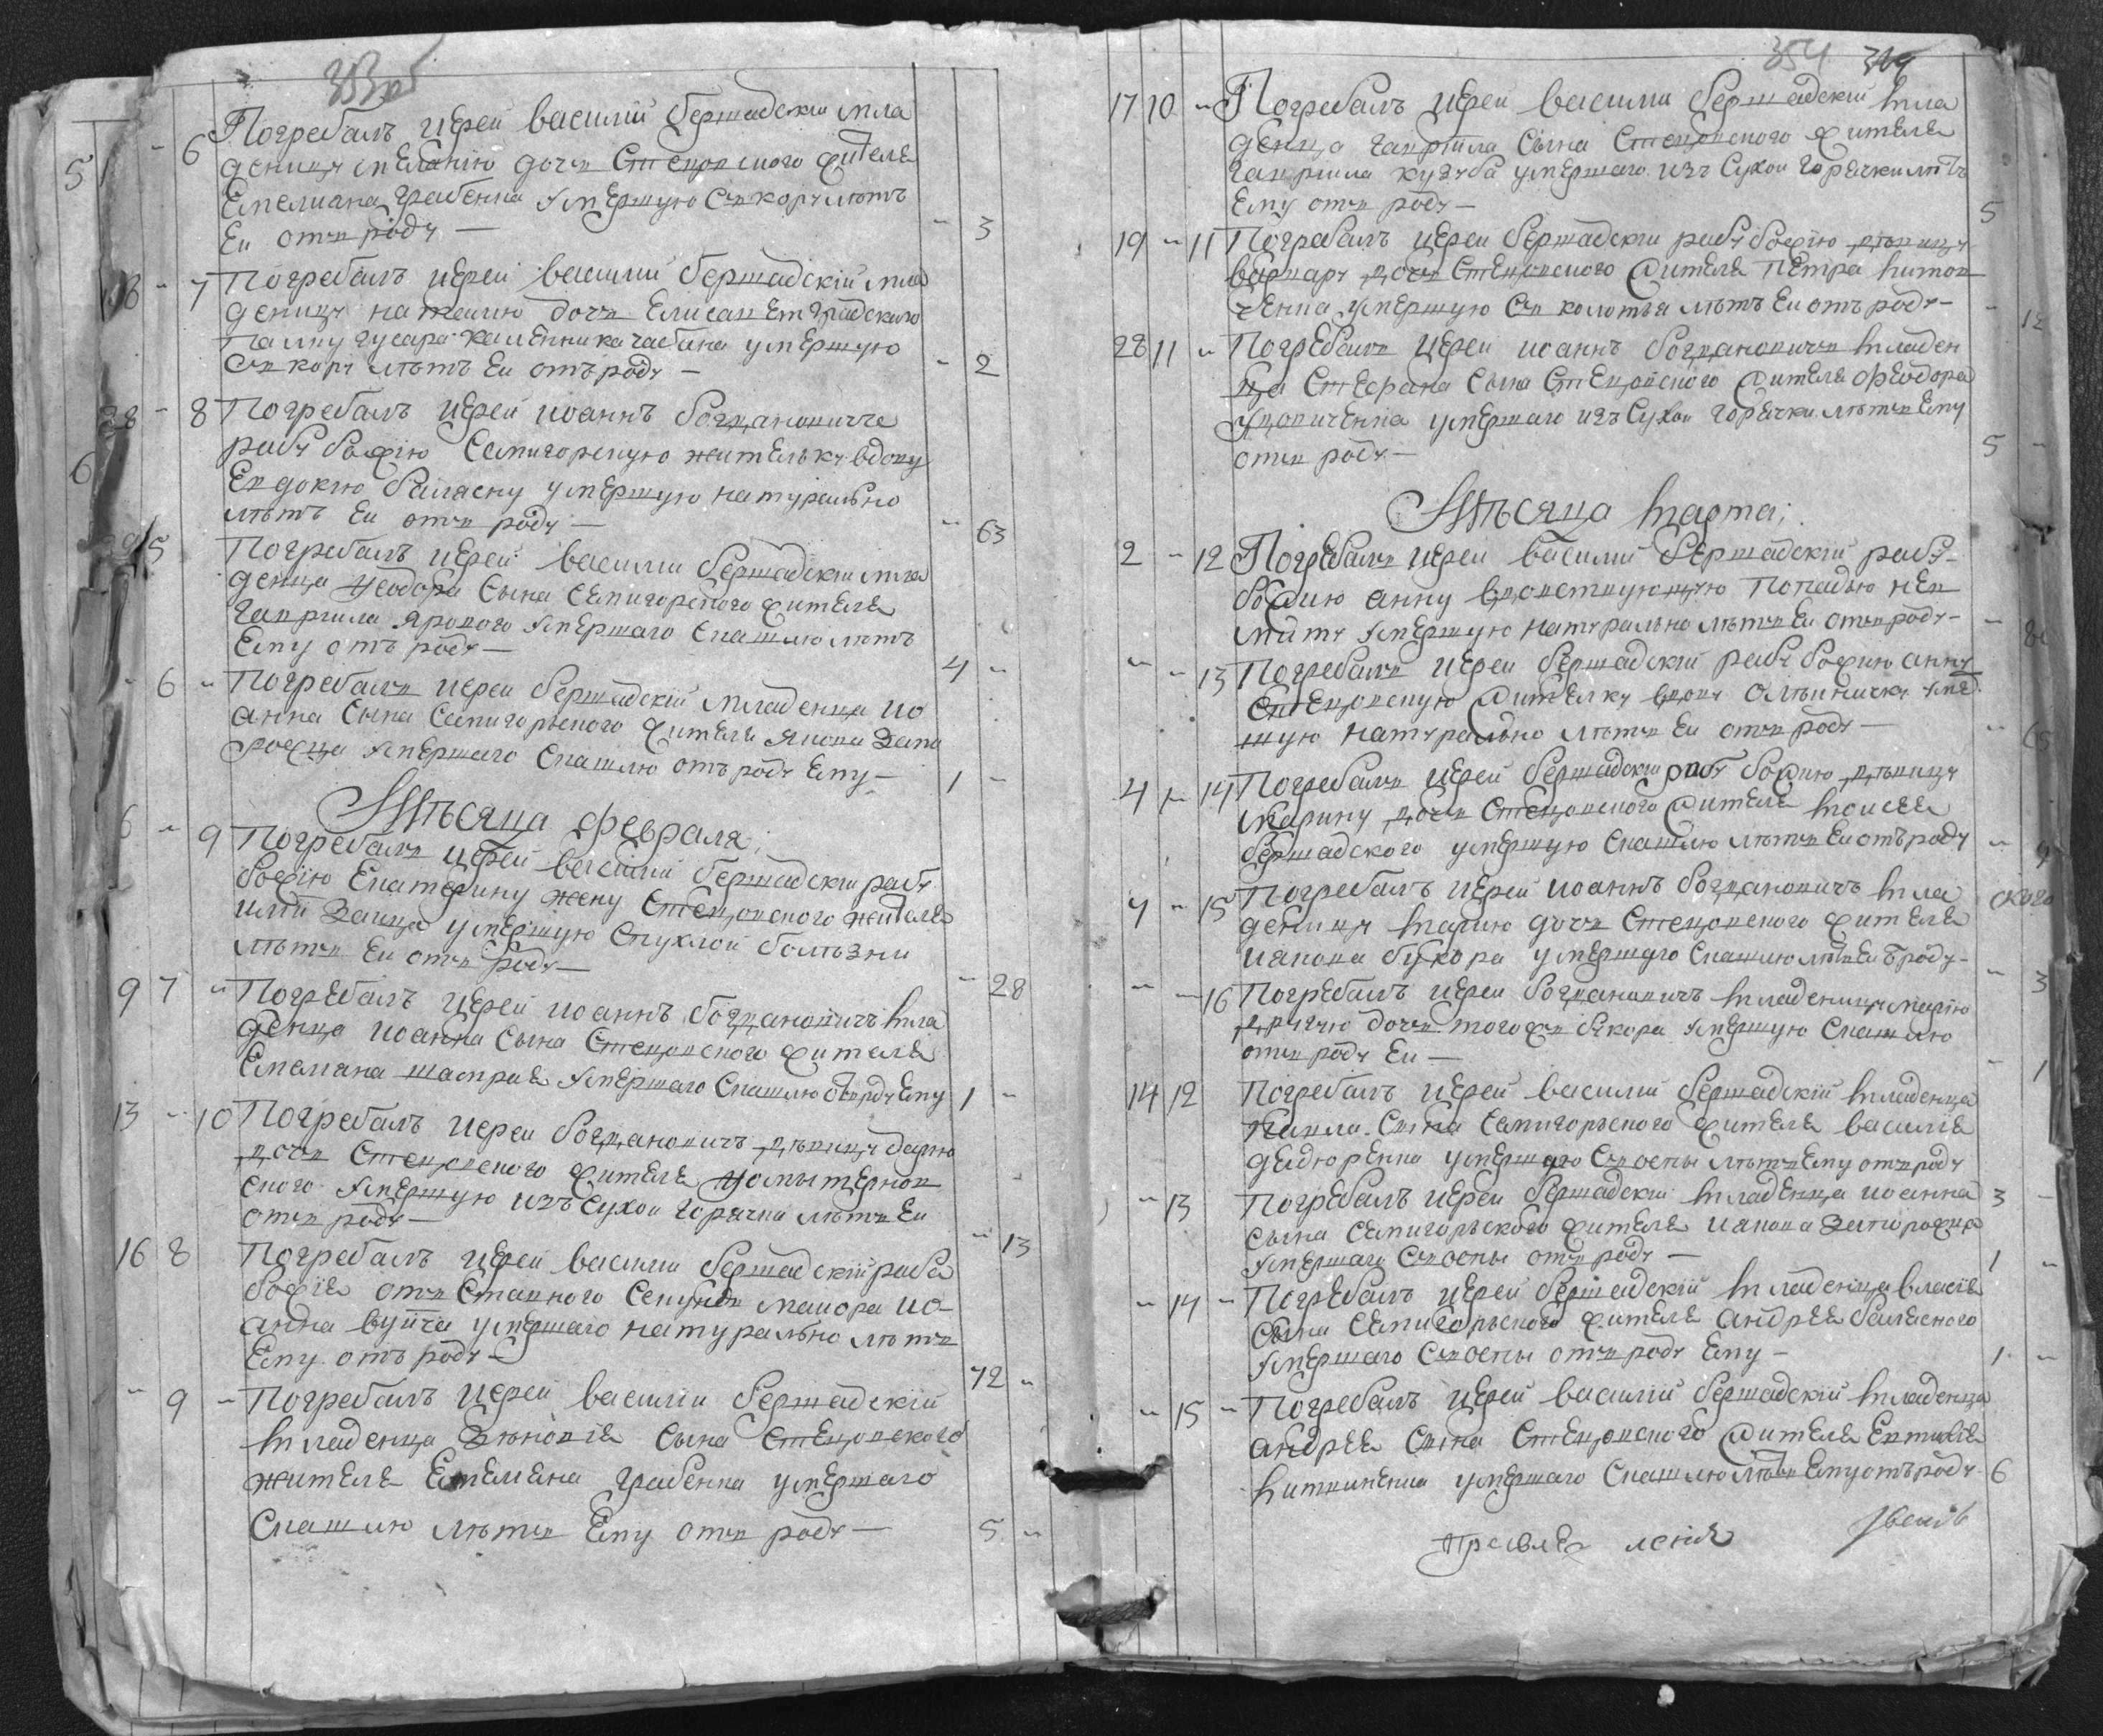 353 об
5 6 Погребалъ иерей василий бершадский мла
деницу меланию дочь Стецовского жителя
Емелиана грабенка умершую съ кору лѣтъ
Еи отъ роду — 3
7 Погребалъ иерей василий бершадский мла
деницу наталию дочь Елисаветградскаго
полку гусара каленника чабана умершую
съ кору лѣтъ Еи отъ роду — 2
28 8 Погребалъ иерей иоаннъ богдановичъ
рабу божию Семигорскую жителку вдову
Евдокию баласку умершую натурально
лѣтъ Еи отъ роду — 63
5 Погребалъ иерей василий бершадский мла
денца Феодора сына Семигорского жителя
гаврила ярового умершаго скашлю лѣтъ
Ему отъ роду — 4
6 Погребалъ иерей бершадский младенца ио
анна сына Семигорского жителя якова запо
рожца умершаго скашлю отъ роду Ему — 1
Мѣсяца февраля;
6 9 Погребалъ иерей василий бершадский рабу
божию Екатерину жену Стецовского жителя
зайца умершую спухлой болѣзни
лѣтъ Еи отъ роду — 28
9 7 Погребалъ иерей иоаннъ богдановичъ мла
денца иоанна сына Стецовского жителя
Емелиана умершаго скашлю отъ роду Ему 1
13 10 Погребалъ иерей богдановичъ дѣвицу дарию
дочь Стецовского жителя Фомы тернов
ского умершую изъ сухой горячки лѣтъ Еи
отъ роду — 13
16 8 Погребалъ иерей василий бершадский раба
божия отъ ставного секундъ маиора ио
анна вуича умершаго натурально лѣтъ
Ему отъ роду — 72
9 Погребалъ иерей василий бершадский
младенца зѣновия сына Стецовского
жителя Емелиана грабенка умершаго
скашлю лѣтъ Ему отъ роду — 5
354
17 10 Погребалъ иерей василий бершадский мла
денца гавриила сына Стецовского жителя
гаврила кузуба умершаго изъ сухой горячки лѣтъ
Ему отъ роду — 5
19 11 Погребалъ иерей бершадский рабу божию дѣвицу
варвару дочь Стецовского жителя петра
умершую съ колотья лѣтъ Еи отъ роду — 12
28 11 Погребалъ иерей иоаннъ богдановичъ младен
ца Стефана сына Стецовского жителя феодора
умершаго изъ сухой горячки лѣтъ Ему
отъ роду — 5
Мѣсяца марта;
2 12 Погребалъ иерей василий бершадский рабу
божию анну вдовствующую попадью
умершую натурально лѣтъ Еи отъ роду —
13 Погребалъ иерей бершадский рабу божию анну
Стецовскую жителку вдову олѣйничку умер
шую натурально лѣтъ Еи отъ роду — 65
4 14 Погребалъ иерей бершадский рабу божию дѣвицу
марину дочь Стецовского жителя моисея
бершадского умершую скашлю лѣтъ Еи отъ роду
7 15 Погребалъ иерей иоаннъ богдановичъ мла
деницу марию дочь Стецовского жителя
иякова букора умершую скашлю лѣтъ Еи отъ роду — 3
16 Погребалъ иерей богдановичъ младеницу марию
другую дочь того жъ букора умершую скашлю
отъ роду Еи — 1
14 12 Погребалъ иерей василий бершадский младенца
павла сына Семигорского жителя василия
дейдюренка умершаго съ воспы лѣтъ Ему отъ роду
3
13 Погребалъ иерей бершадский младенца иоанна
сына Семигорьского жителя иякова запорожца
умершаго съ воспы отъ роду — 1
14 Погребалъ иерей бершадский младенца власия
сына Семигорьского жителя андрея баласного
умершаго съ воспы отъ роду Ему — 1
15 Погребалъ иерей василий бершадский младенца
андрея сына Стецовского жителя Евтихия
никитиненка умершаго скашлю лѣтъ Ему отъ роду 6